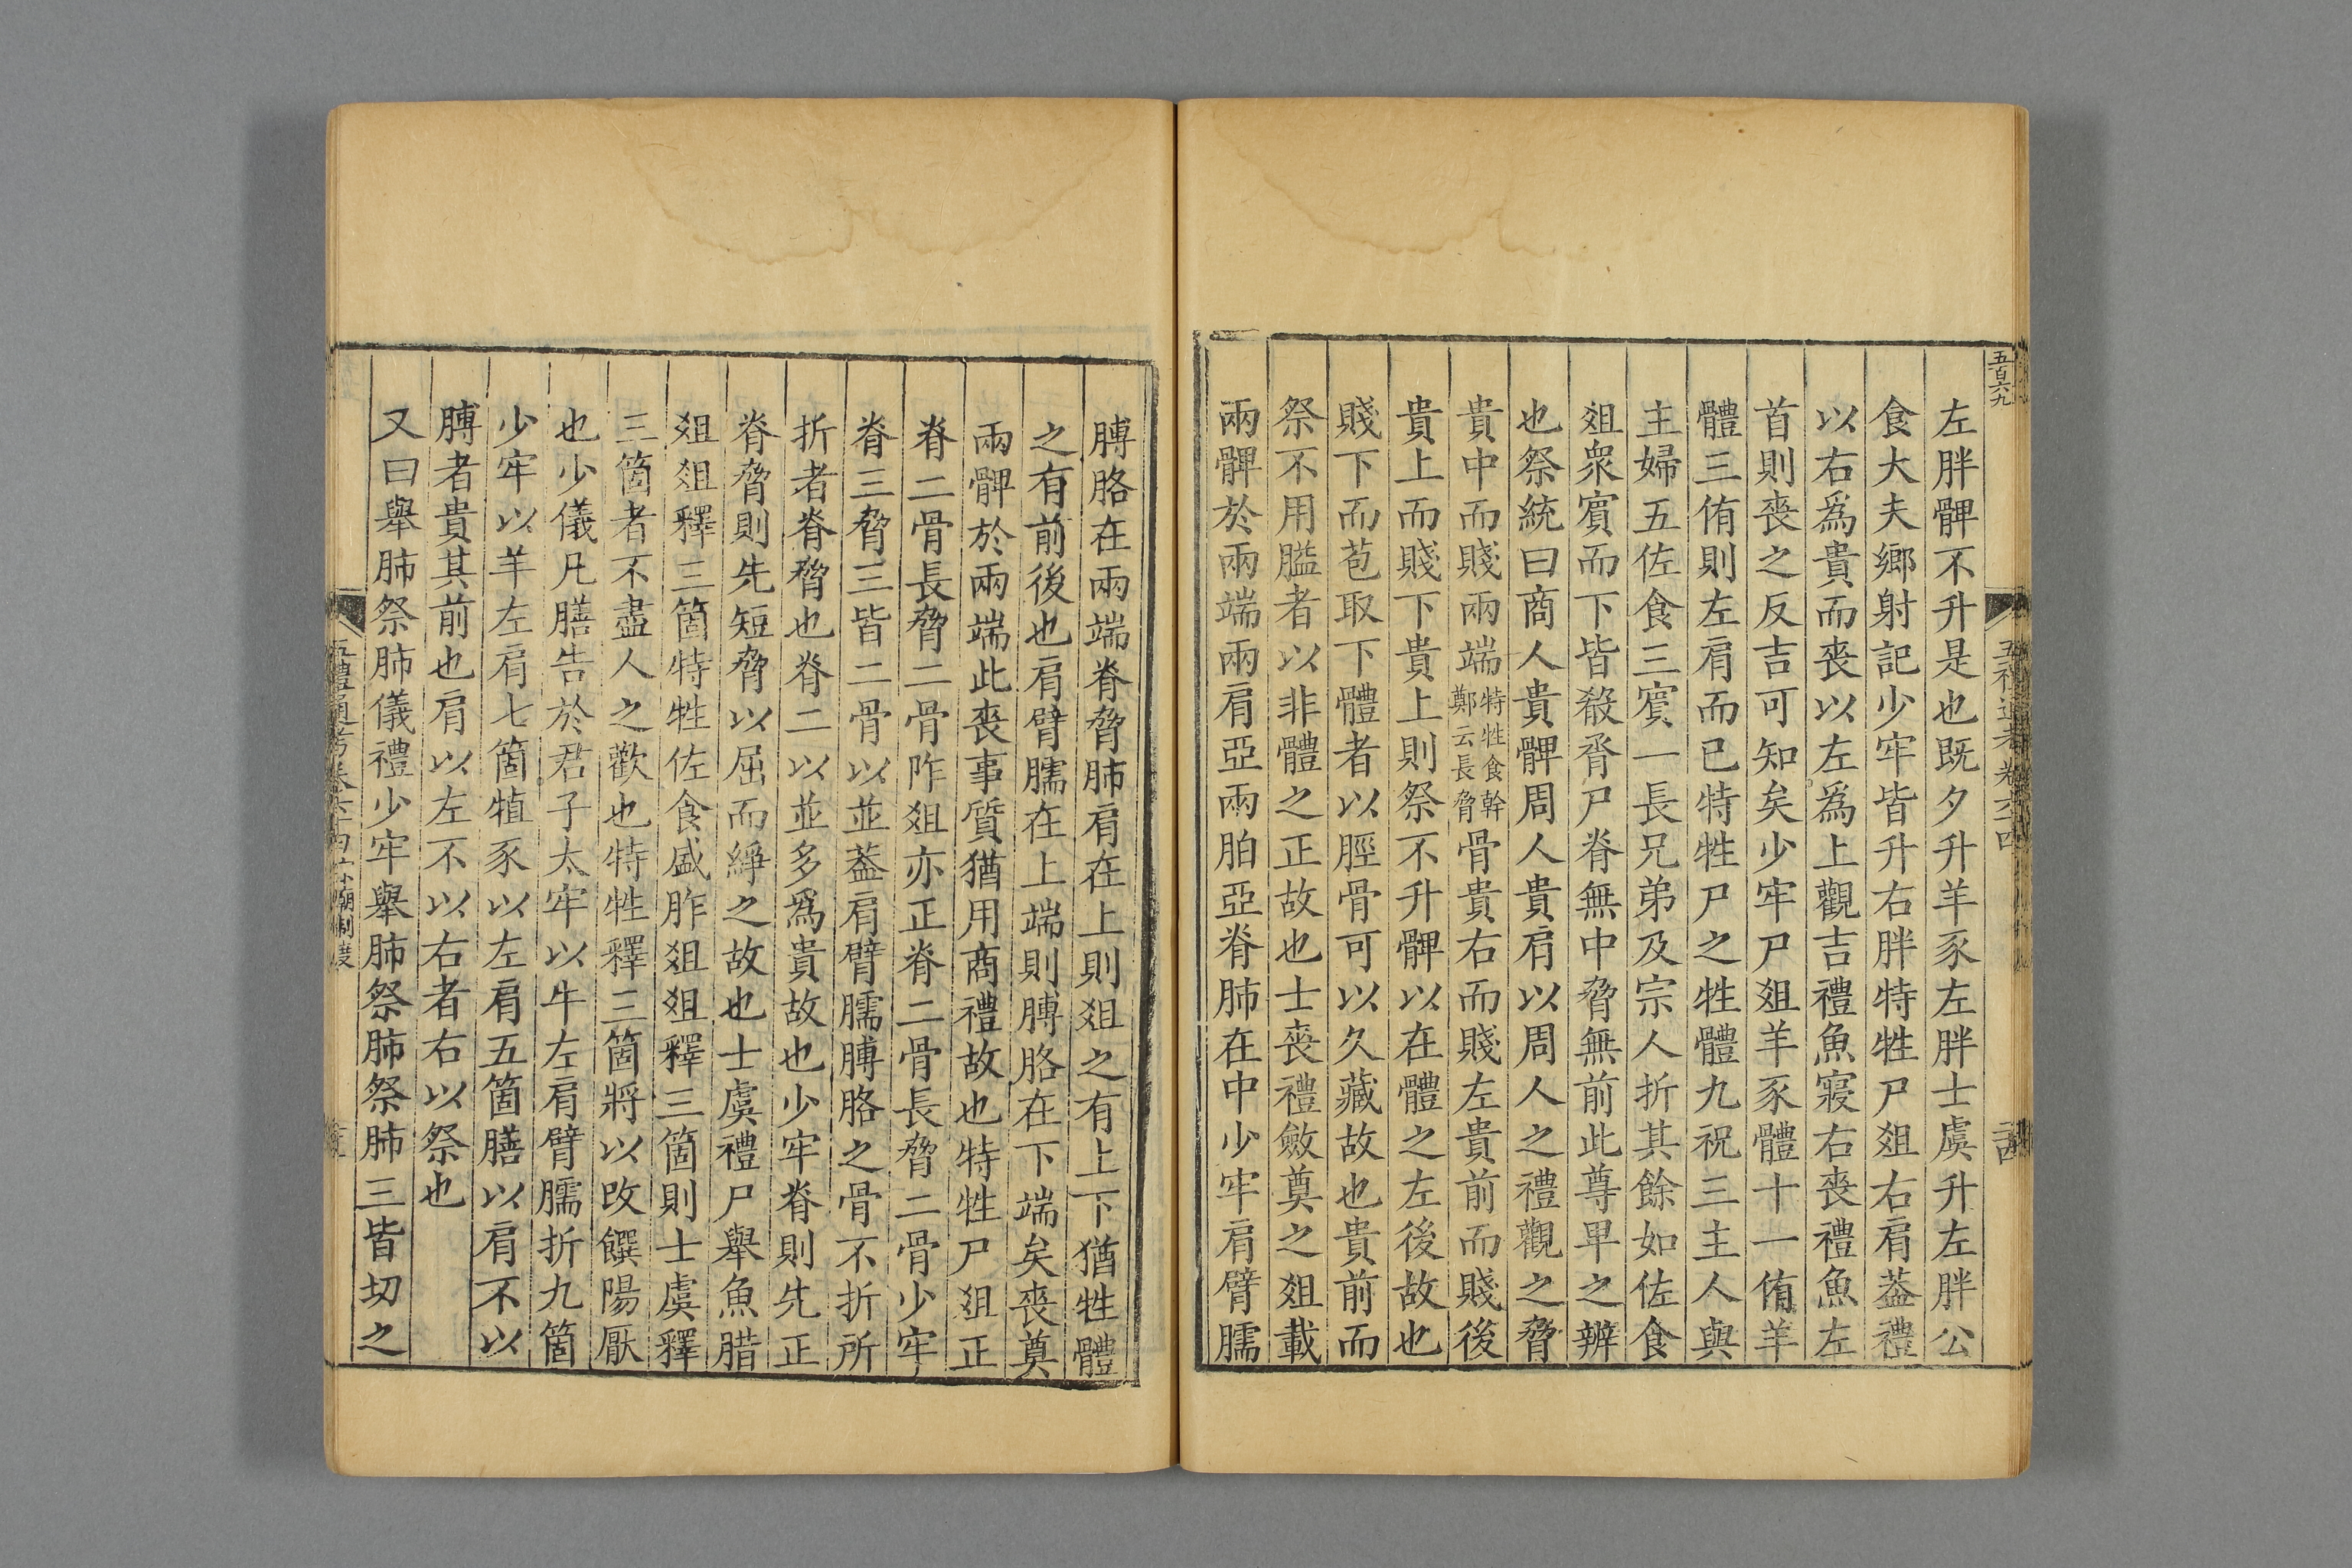 五百六九
左胖髀不升是也既夕升羊豕左胖士虞升左胖公
食大夫鄉射記少牢皆升右胖特牲尸俎右肩葢禮
以右爲貴而喪以左爲上觀吉禮魚寢右喪禮魚左
首則喪之反吉可知矣少牢尸俎羊豕體十一侑羊
體三侑則左肩而已特牲尸之牲體九祝三主人與
主婦五佐食三賔一長兄弟及宗人折其餘如佐食
俎衆賔而下皆殽脀尸脊無中脅無前此尊卑之辨
也祭統曰商人貴髀周人貴肩以周人之禮觀之脅
貴中而賤兩端特牲食幹鄭云長脅骨貴右而賤左貴前而賤後
貴上而賤下貴上則祭不升髀以在體之左後故也
賤下而苞取下體者以脛骨可以久藏故也貴前而
祭不用膉者以非體之正故也士喪禮斂奠之俎載
兩髀於兩端兩肩亞兩胉亞脊肺在中少牢肩臂臑
膊胳在兩端脊脅肺肩在上則俎之有上下猶牲體
之有前後也肩臂臑在上端則膊胳在下端矣喪奠
兩髀於兩端此喪事質猶用商禮故也特牲尸俎正
脊二骨長脅二骨阼俎亦正脊二骨長脅二骨少牢
脊三脅三皆二骨以並葢肩臂臑膊胳之骨不折所
折者脊脅也脊二以並多爲貴故也少牢脊則先正
脊脅則先短脅以屈而綪之故也士虞禮尸舉魚腊
俎俎釋三箇特牲佐食盛胙俎俎釋三箇則士虞釋
三箇者不盡人之歡也特牲釋三箇將以改饌陽厭
也少儀凡膳告於君子太牢以牛左肩臂臑折九箇
少牢以羊左肩七箇犆豕以左肩五箇膳以肩不以
膊者貴其前也肩以左不以右者右以祭也
又曰舉肺祭肺儀禮少牢舉肺祭肺祭肺三皆切之